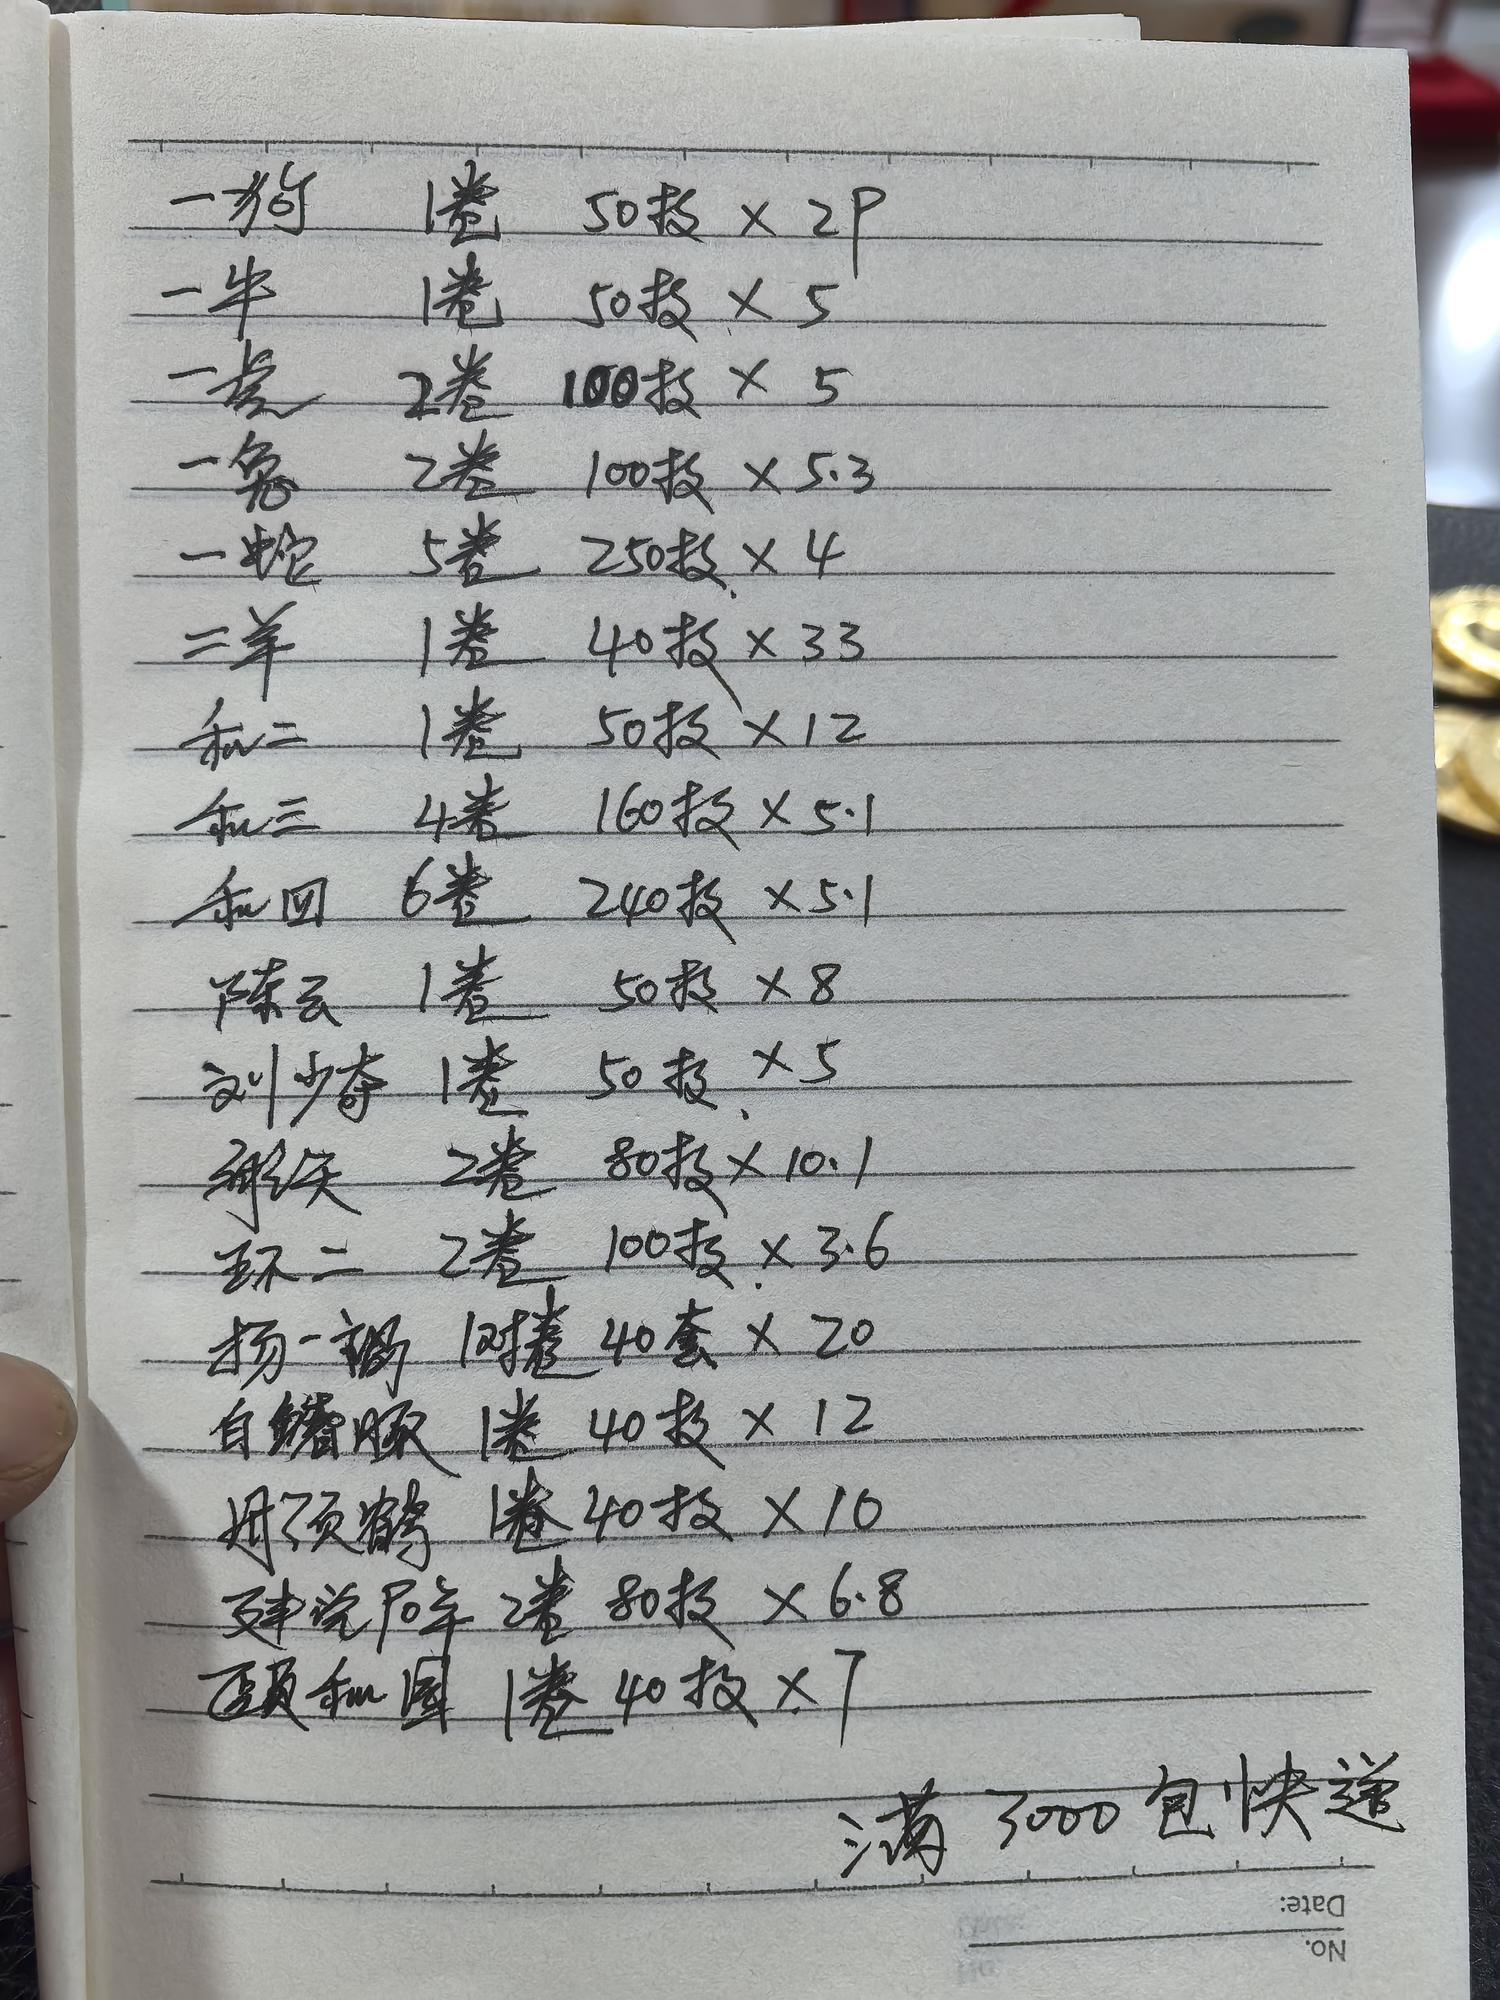 一狗 1卷 50枚 × 29
一牛 1卷 50枚 × 5
一虎 2卷 100枚 × 5
一兔 2卷 100枚 × 5.3
一蛇 5卷 250枚 × 4
二羊 1卷 40枚 × 33
和二 1卷 50枚 × 12
和三 4卷 160枚 × 5.1
和四 6卷 240枚 × 5.1
陈云 1卷 50枚 × 8
刘少奇 1卷 50枚 × 5
2卷 80枚 × 10.1
环二 2卷 100枚 × 3.6
扬一 1对卷 40套 × 20
白鳍豚 1卷 40枚 × 12
丹顶鹤 1卷 40枚 × 10
建党70年 2卷 80枚 × 6.8
颐和园 1卷 40枚 × 7
满 3000 包快递
Date:
No.